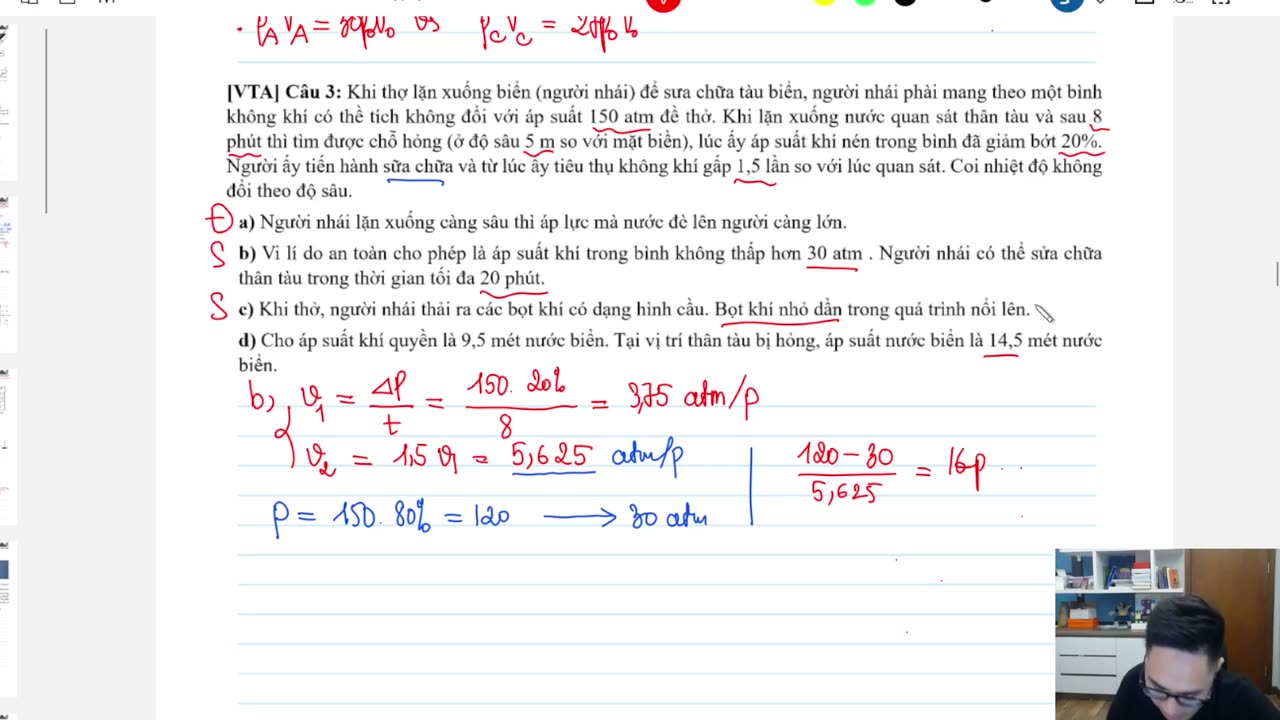 . PAVA = 30p₀V₀ PCVC =
[VTA] Câu 3: Khi thợ lặn xuống biển (người nhái) để sưa chữa tàu biển, người nhái phải mang theo một bình
không khí có thể tích không đổi với áp suất 150 atm để thở. Khi lặn xuống nước quan sát thân tàu và sau 8
phút thì tìm được chỗ hỏng (ở độ sâu 5 m so với mặt biển), lúc ấy áp suất khí nén trong bình đã giảm bớt 20%.
Người ấy tiến hành sữa chữa và từ lúc ấy tiêu thụ không khí gấp 1,5 lần so với lúc quan sát. Coi nhiệt độ không
đổi theo độ sâu.
Đ a) Người nhái lặn xuống càng sâu thì áp lực mà nước đè lên người càng lớn.
S b) Vì lí do an toàn cho phép là áp suất khí trong bình không thấp hơn 30 atm . Người nhái có thể sửa chữa
thân tàu trong thời gian tối đa 20 phút.
S c) Khi thở, người nhái thải ra các bọt khí có dạng hình cầu. Bọt khí nhỏ dần trong quá trình nổi lên.
d) Cho áp suất khí quyển là 9,5 mét nước biển. Tại vị trí thân tàu bị hỏng, áp suất nước biển là 14,5 mét nước
biển.
b, v₁ = ΔP/t = 150. 20%/8 = 3,75 atm/p
v₂ = 1,5 v₁ = 5,625 atm/p
120 - 30/5,625 = 16p
P = 150. 80% = 120 → 30 atm